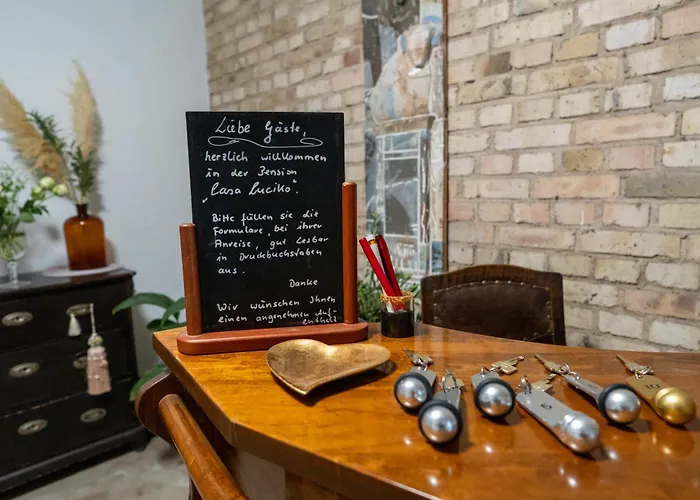 Liebe Gäste,
herzlich willkommen
in der Pension
"Casa Luciko".
Bitte füllen sie die
Formulare, bei ihrer
Anreise, gut lesbar
in Druckbuchstaben
aus.
Danke
Wir wünschen Ihnen
einen angenehmen Auf-
enthalt